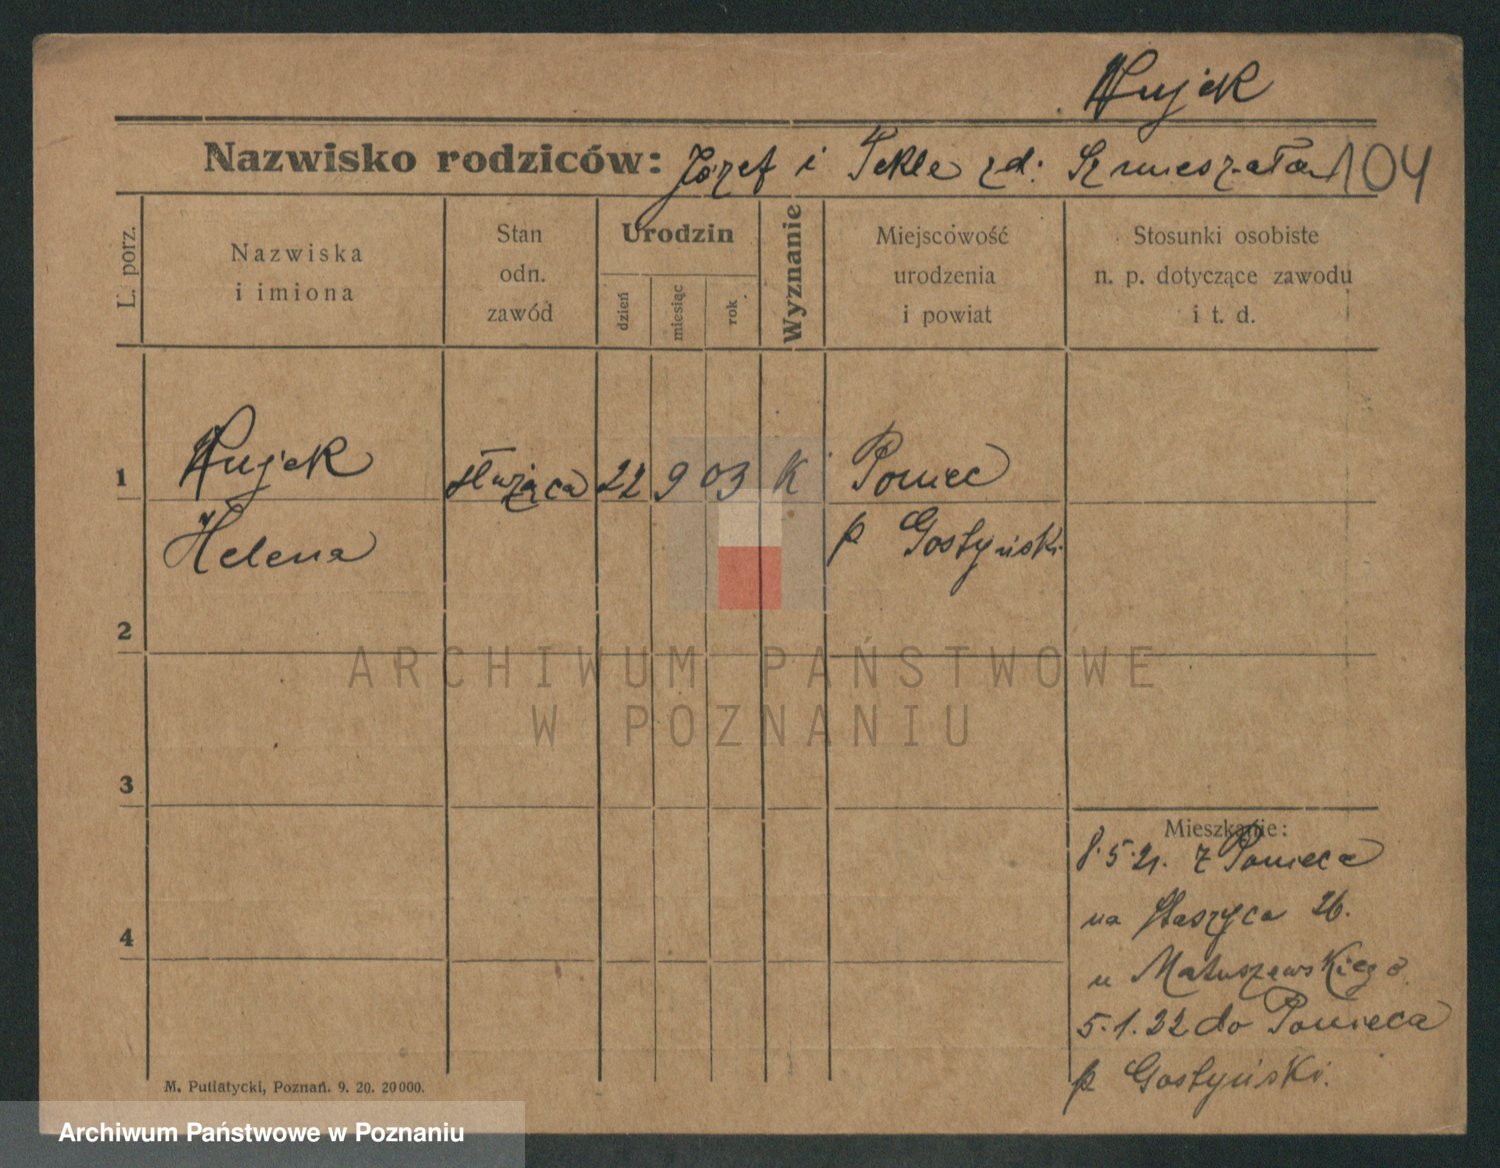 Wujek
Nazwisko rodziców: Józef i Tekle zd:
104
L. porz.
Nazwiska
i imiona
Stan
odn.
zawód
Urodzin
dzień
miesiąc
rok
Wyznanie
Miejscowość
urodzenia
i powiat
Stosunki osobiste
n. p. dotyczące zawodu
i t. d.
1 Wujek służąca 22 9 03 K Poniec
Helena p Gostyński
2
ARCHIWUM PAŃSTWOWE
W POZNANIU
3
Mieszkanie:
8.5.21. z Ponieca
na Staszyca 26.
4
u Matuszewskiego
5.1.22 do Ponieca
p Gostyński.
M. Putiatycki, Poznań. 9. 20. 20000.
Archiwum Państwowe w Poznaniu